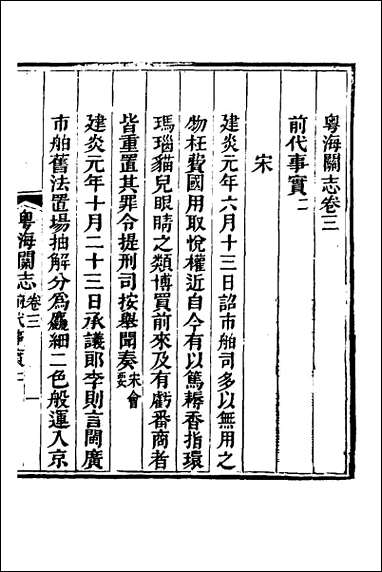 粵海關志卷三
前代事實二
宋
建炎元年六月十三日詔市舶司多以無用之
物枉費國用取悅權近自今有以篤耨香指環
瑪瑙貓兒眼睛之類博買前來及有虧番商者
皆重置其罪令提刑司按舉聞奏宋會要
建炎元年十月二十三日承議郎李則言閩廣
市舶舊法置場抽解分為麤細二色般運入京
粵海關志 卷三 前代事實二 一